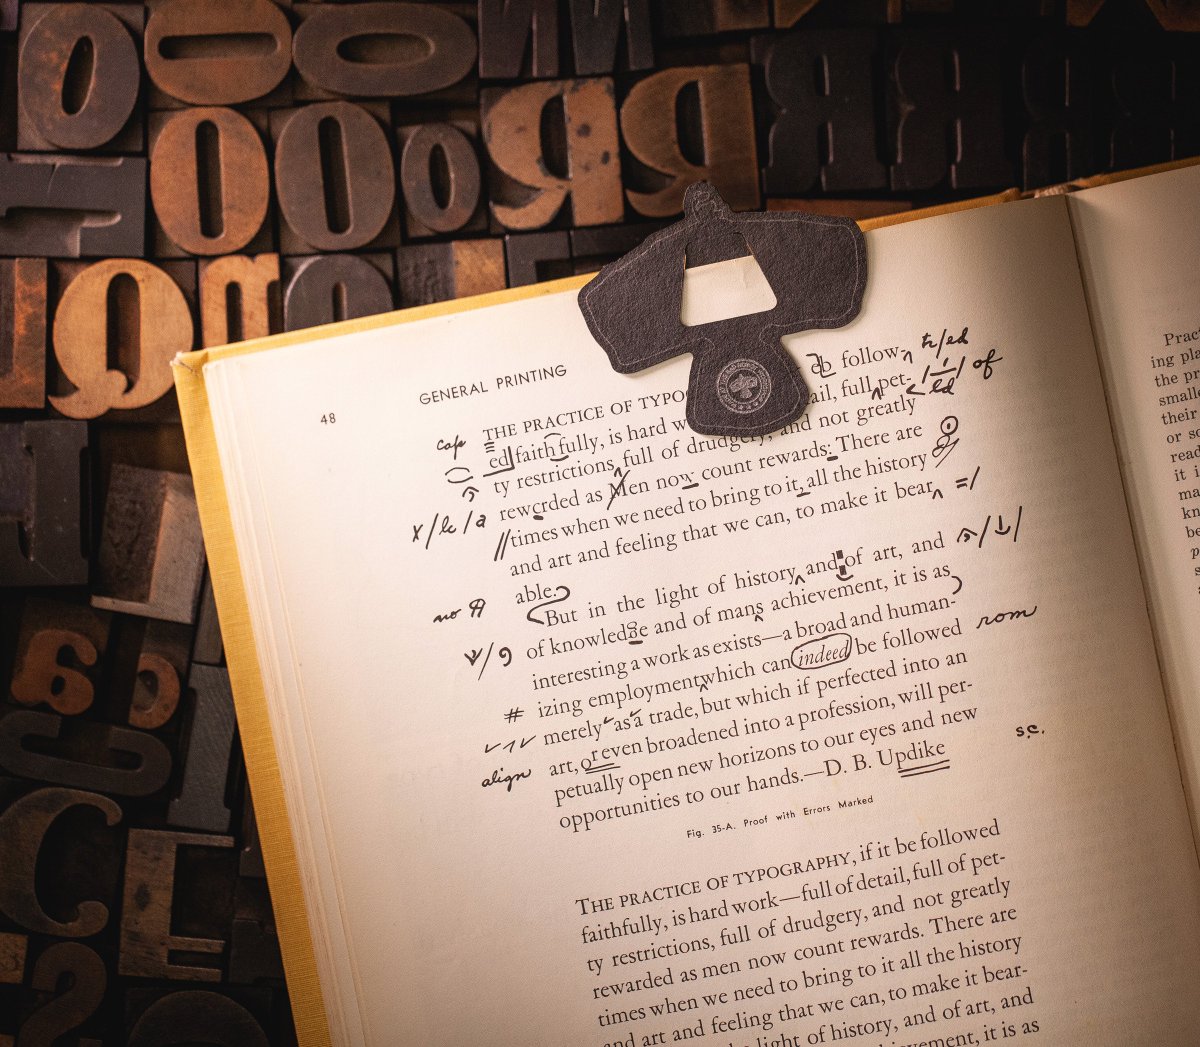 48
GENERAL PRINTING
THE PRACTICE OF TYPO
follow
cap
tr/ed
ed faithfully, is hard w
ail, full pet-
of
ld
ty restrictions, full of drudgery, and not greatly
x/lc/a
rewcrded as Men now count rewards: There are
times when we need to bring to it, all the history
and art and feeling that we can, to make it bear
=/
able.
no ¶
But in the light of history, and of art, and
of knowledge and of mans achievement, it is as
interesting a work as exists—a broad and human-
#
izing employmentwhich can indeed be followed
rom
merely as a trade, but which if perfected into an
align
art, or even broadened into a profession, will per-
petually open new horizons to our eyes and new
s.c.
opportunities to our hands.—D. B. Updike
Fig. 35-A. Proof with Errors Marked
THE PRACTICE OF TYPOGRAPHY, if it be followed
faithfully, is hard work—full of detail, full of pet-
ty restrictions, full of drudgery, and not greatly
rewarded as men now count rewards. There are
times when we need to bring to it all the history
and art and feeling that we can, to make it bear-
light of history, and of art, and
evement, it is as
Prac
ing pla
the pr
smalle
their
or so
read
it i
ma
kn
be
p